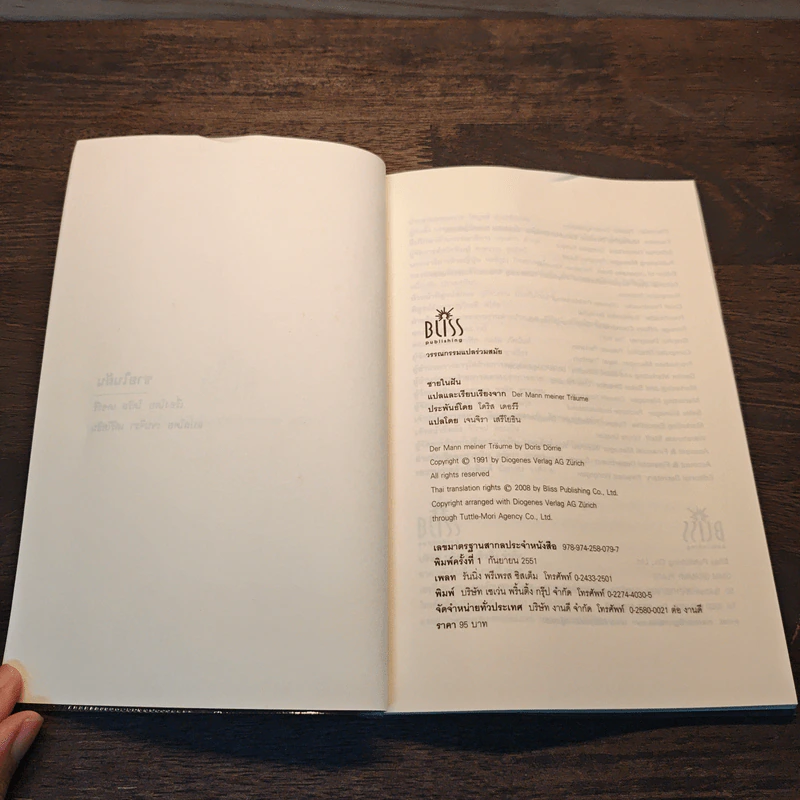 BLISS
publishing
วรรณกรรมแปลร่วมสมัย
ชายในฝัน
แปลและเรียบเรียงจาก Der Mann meiner Träume
ประพันธ์โดย โดริส เดอร์รี
แปลโดย เจนจิรา เสรีโยธิน
Der Mann meiner Träume by Doris Dörrie
Copyright © 1991 by Diogenes Verlag AG Zürich
All rights reserved
Thai translation rights © 2008 by Bliss Publishing Co., Ltd.
Copyright arranged with Diogenes Verlag AG Zürich
through Tuttle-Mori Agency Co., Ltd.
เลขมาตรฐานสากลประจำหนังสือ 978-974-258-079-7
พิมพ์ครั้งที่ 1 กันยายน 2551
เพลท รันนิ่ง พรีเพรส ซิสเต็ม โทรศัพท์ 0-2433-2501
พิมพ์ บริษัท เซเว่น พริ้นติ้ง กรุ๊ป จำกัด โทรศัพท์ 0-2274-4030-5
จัดจำหน่ายทั่วประเทศ บริษัท งานดี จำกัด โทรศัพท์ 0-2580-0021 ต่อ งานดี
ราคา 95 บาท